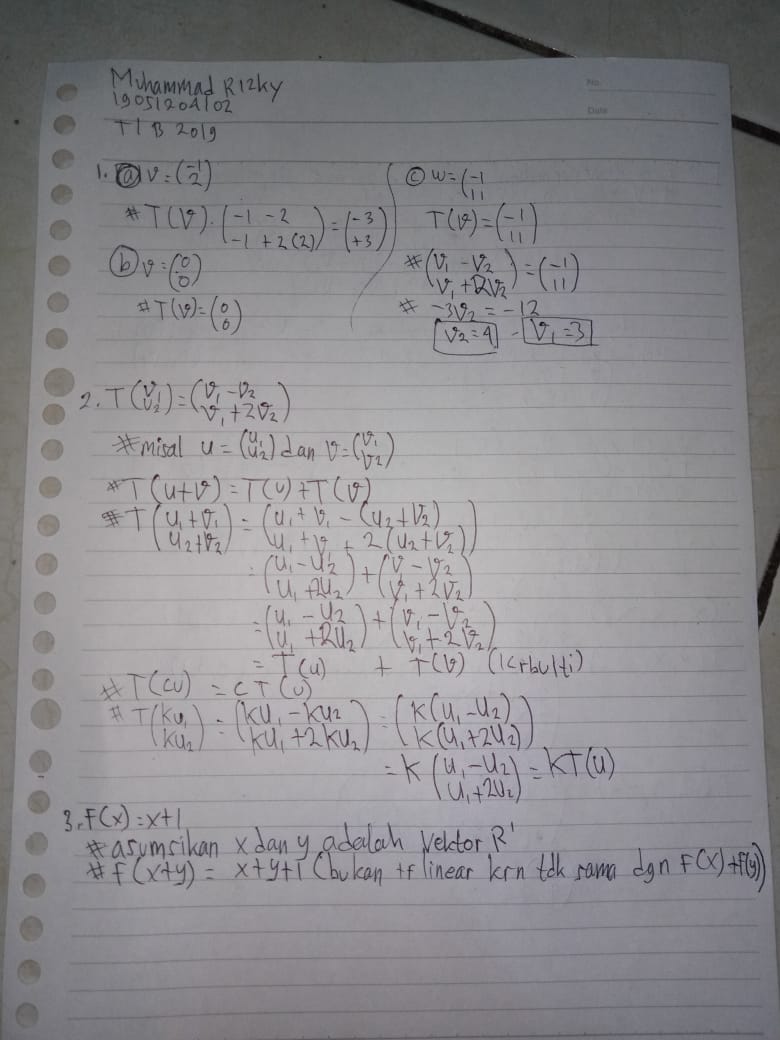 No.
Date
Muhammad Rizky
19051204102
TI B 2019
1. (a) v = (-1 2)
# T(v) = (-1 -2 / -1 + 2(2)) = (-3 / +3)
(b) v = (0 0)
# T(v) = (0 0)
(c) w = (-1 11
T(v) = (-1 11)
# (v₁ - v₂ / v₁ + 2v₂) = (-1 / 11)
# -3v₂ = -12
v₂ = 4 - v₁ = 3
2. T(v₁ v₂) = (v₁ - v₂ / v₁ + 2v₂)
# misal u = (u₁ u₂) dan v = (v₁ v₂)
# T(u+v) = T(u) + T(v)
# T(u₁+v₁ / u₂+v₂) = (u₁ + v₁ - (u₂+v₂) / u₁ + v₁ + 2(u₂+v₂))
= (u₁ - u₂ / u₁ + 2u₂) + (v - v₂ / v₁ + 2v₂)
= (u₁ - u₂ / u₁ + 2u₂) + (v₁ - v₂ / v₁ + 2v₂)
= T(u) + T(v)
# T(cu) = cT(u)
# T(ku₁ / ku₂) = (ku₁ - ku₂ / ku₁ + 2ku₂) = (k(u₁-u₂) / k(u₁+2u₂))
= k (u₁ - u₂ / u₁ + 2u₂) = kT(u)
3. F(x) = x+1
# asumsikan x dan y adalah Vektor R¹
# f(x+y) = x+y+1 (bukan tf linear krn tdk sama dgn F(x) + f(y))